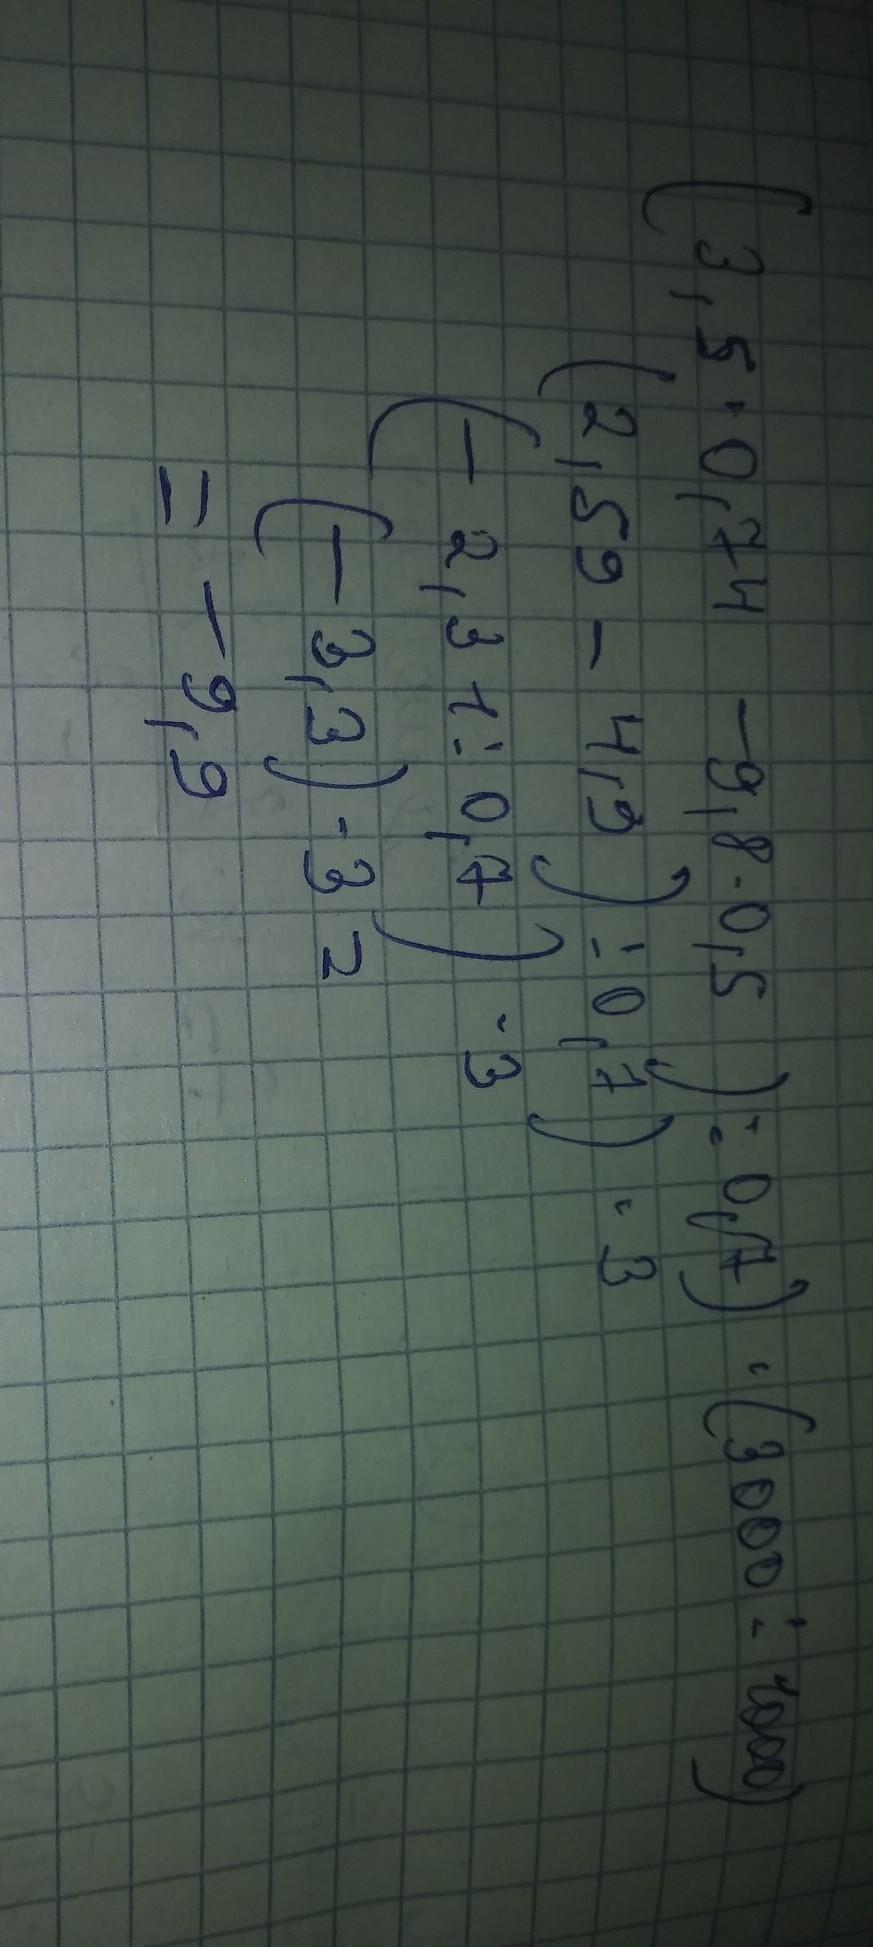 (3,5·0,74 -9,8·0,5):0,7)·(3000:1000)
(2,59-4,9):0,7)·3
(-2,31:0,7)·3
(-3,3)·3 =
= -9,9